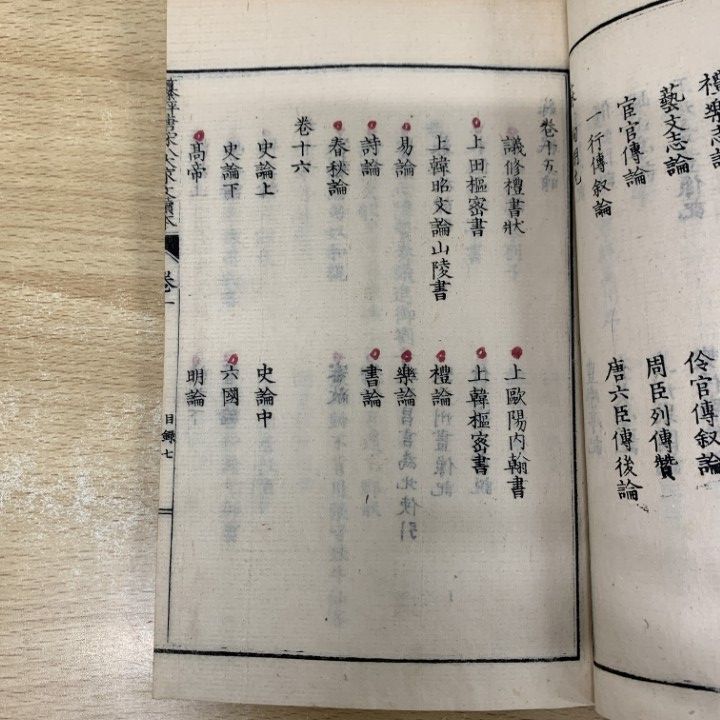 禮樂志論
伶官傳叙論
藝文志論
周臣列傳贊
宦官傳論
唐六臣傳後論
一行傳叙論
卷十五
議修禮書狀
上歐陽內翰書
上田樞密書
上韓樞密書
上韓昭文論山陵書
禮論
易論
樂論
詩論
書論
春秋論
卷十六
史論上
史論中
史論下
六國
高帝
明論
纂評唐宋八大家文讀本
卷一
目錄七